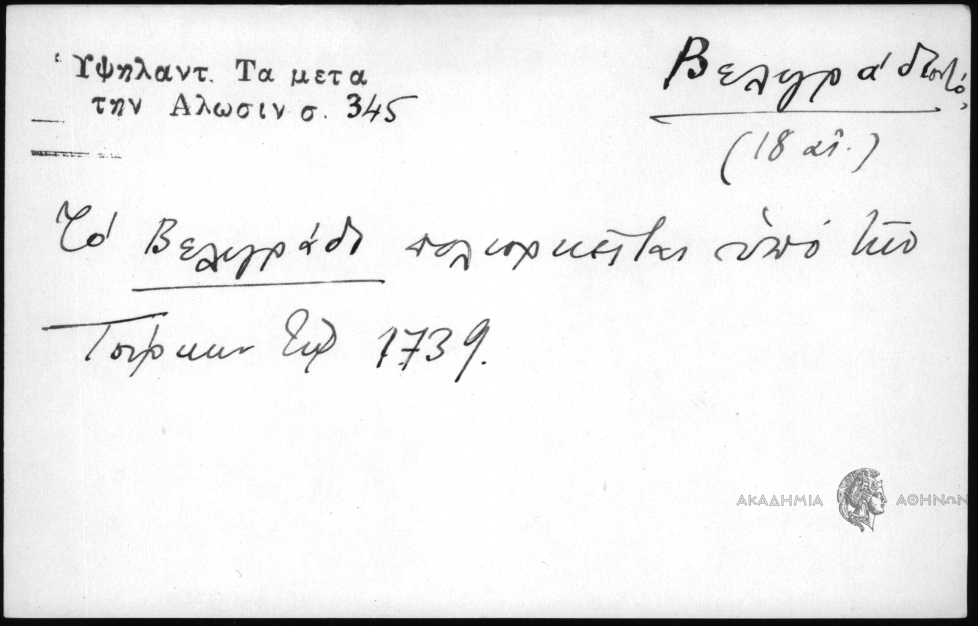 Ὑψηλαντ. Τα μετα
την Αλωσιν σ. 345
Βελιγράδιον, τό
(18 αἰ.)
Τό Βελιγράδι πολιορκεῖται ὑπό τῶν
Τούρκων τῷ 1739.
ΑΚΑΔΗΜΙΑ ΑΘΗΝΩΝ